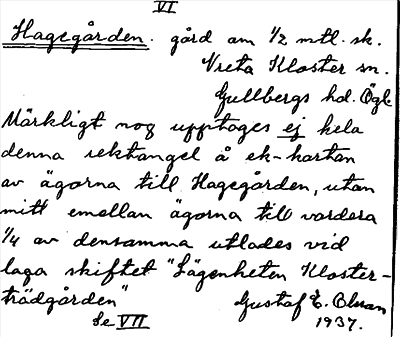 VI
Hagegården. gård om 1/2 mtl. sk.
Vreta Kloster sn.
Gullbergs hd. Ögl.
Märkligt nog upptages ej hela
denna rektangel å ek-kartan
av ägorna till Hagegården, utan
mitt emellan ägorna till vardera
1/4 av densamma utlades vid
laga skiftet "Lägenheten Kloster-
trädgården"
Gustaf E. Olsson
Se VII
1937.